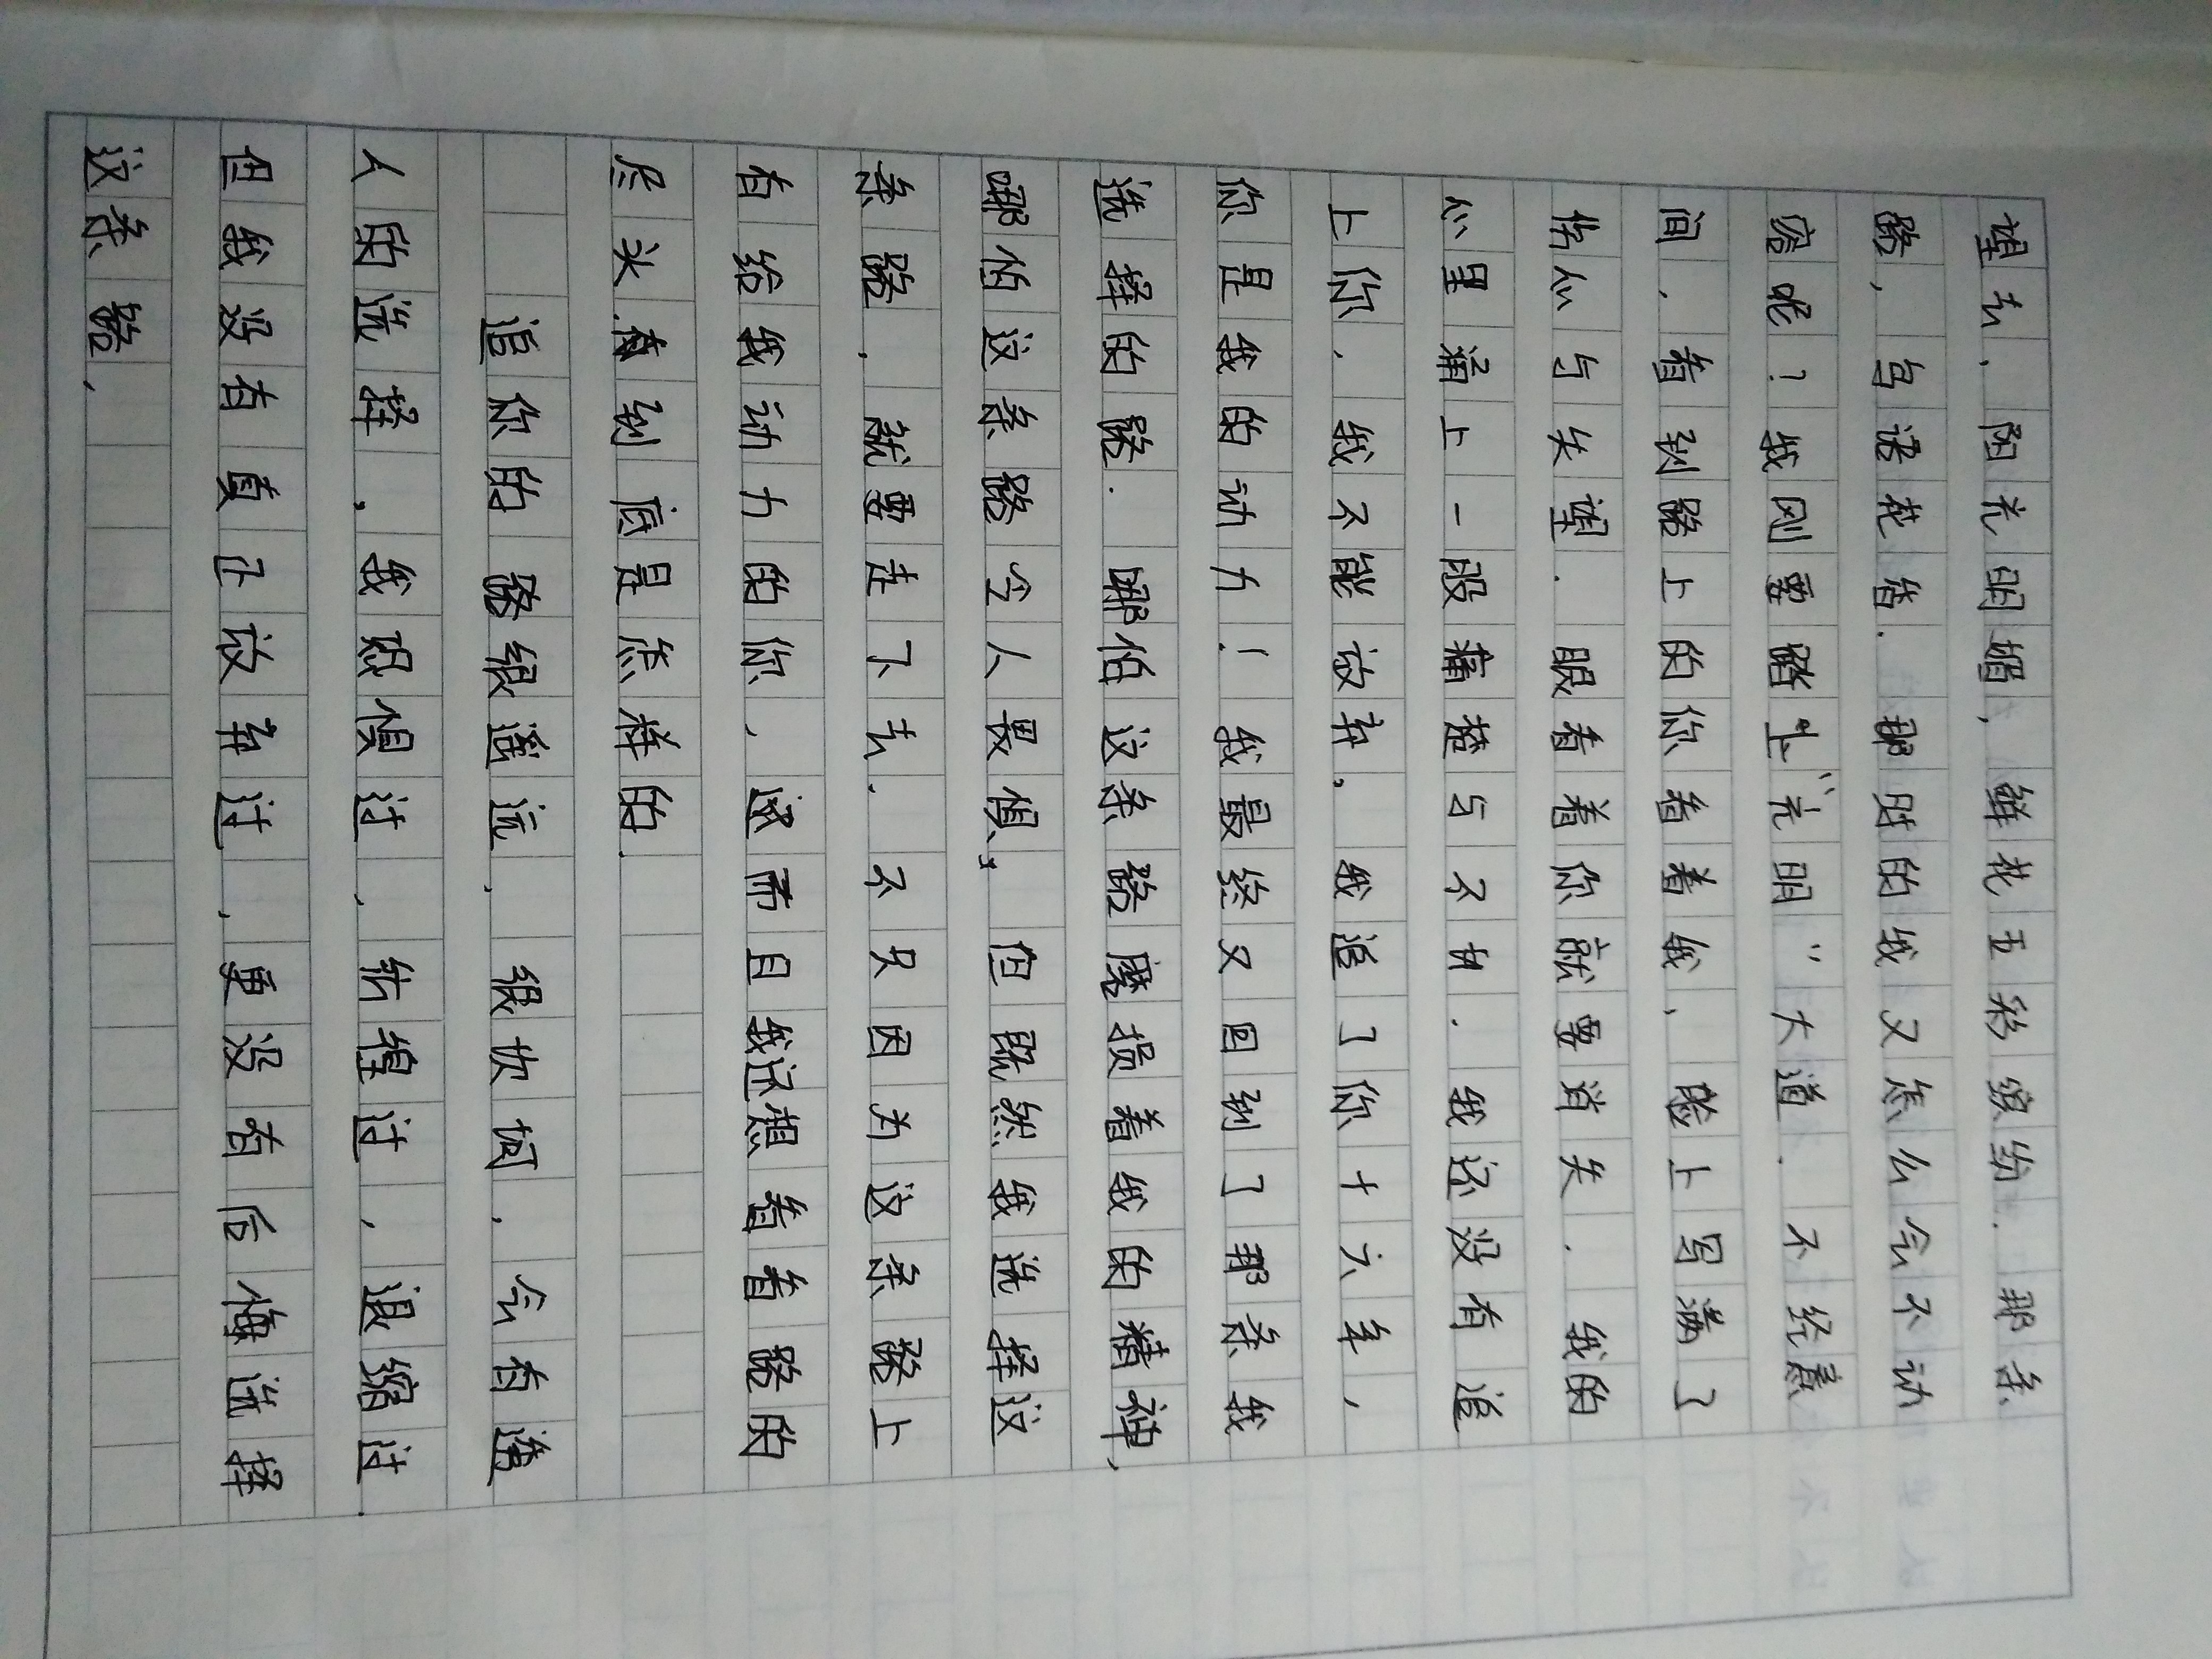 望去，阳光明媚，鲜花五彩缤纷．那条
路，鸟语花香．那时的我又怎么会不动
容呢？我刚要踏上“光明”大道．不经意
间，看到路上的你看着我，脸上写满了
伤心与失望．眼看着你就要消失．我的
心里涌上一股痛楚与不甘．我还没有追
上你，我不能放弃，我追了你十六年，
你是我的动力！我最终又回到了那条我
选择的路．哪怕这条路磨损着我的精神，
哪怕这条路令人畏惧，但既然我选择这
条路，就要走下去．不只因为这条路上
有给我动力的你，而且我还想看看路的
尽头，到底是怎样的．
追你的路很遥远，很坎坷，会有遭
人的选择，我恐惧过，彷徨过，退缩过．
但我没有真正放弃过，更没有后悔选择
这条路．